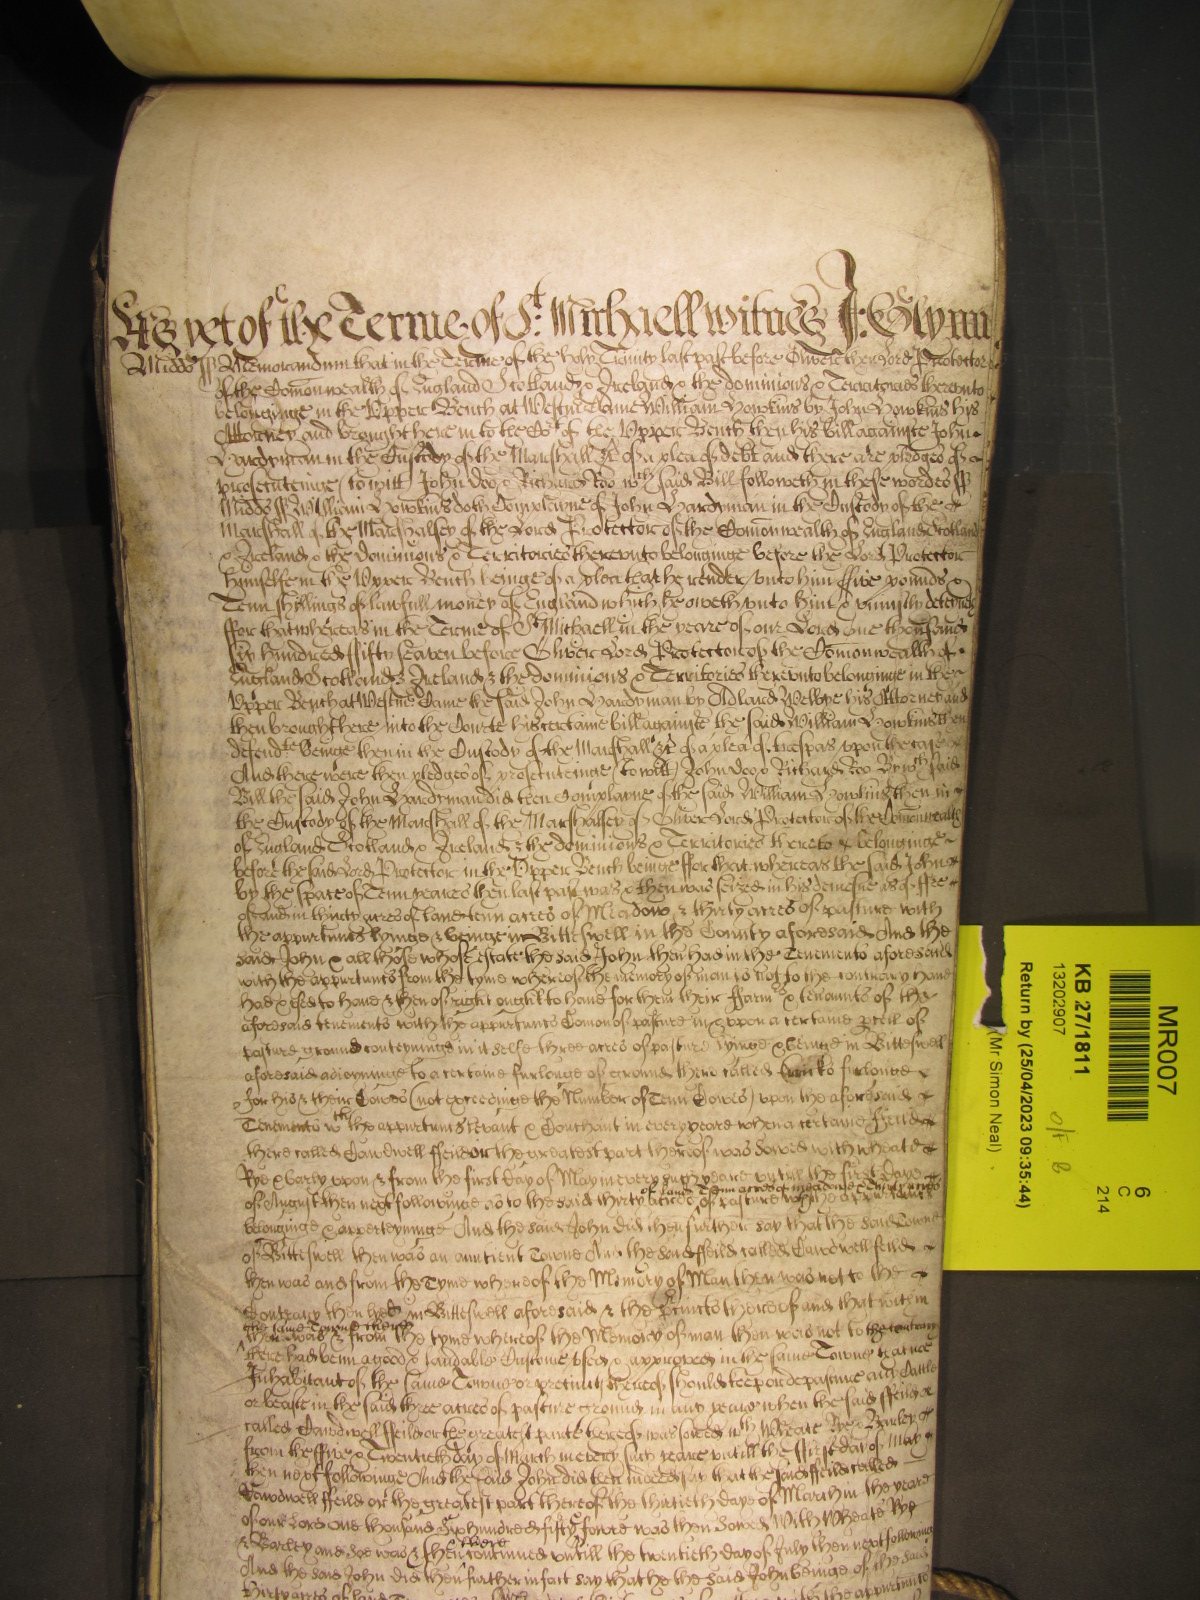 As yet of the Terme of St. Michaell witnes J: Glynn
Midds ss Memorandum that in the Terme of the holy Trinity last past before Oliver then Lord Protector
of the Comonwealth of England Scotland & Ireland & the dominions & Territories thereunto
belonginge in the Upper Bench at Westmr Came William Howkins by John Howkins his
Attorney and brought here into the Cot of the Upper Bench then his bill againste John
Hardyman in the Custody of the Marshall &c of a plea of debt and there are pledges of
prosecuteinge (to witt) John Doo & Richard Roo wch said Bill followeth in these wordes ss
Midds ss William Howkins doth Complayne of John Hardyman in the Custody of the
Marshall of the Marshalsey of the Lord Protector of the Comonwealth of England Scotland
& Ireland & the dominions & Territories thereunto belonginge before the Lord Protector
himselfe in the Upper Bench beinge of a plea that he render unto him ffive pounds &
Tenn shillings of lawfull money of England which he oweth unto him & uniustly deteyneth
ffor that whereas in the Terme of St Michaell in the yeare of our Lord one thousand
six hundred ffifty seaven before Oliver Lord Protector of the Comonwealth of
England Scotland & Ireland & the dominions & Territories thereunto belonginge in the
Upper Bench at Westmr Came the said John Hardyman by Adland Welbye his Attorney and
then brought here into the Courte his certaine bill againste the said William Howkins then
defendt beinge then in the Custody of the Marshall &c of a plea of trespas upon the case
And there were then pledges of prosecuteinge (to witt) John Doo & Richard Roo By wch said
Bill the said John Hardyman did then Complayne of the said William Howkins then in
the Custody of the Marshall of the Marshalsey of Oliver Lord Protector of the Comonwealth
of England Scotland & Ireland & the dominions & Territories thereto belonginge
before the said Lord Protector in the Upper Bench beinge ffor that whereas the said John
by the space of Tenn yeares then last past was & then was seized in his demesne as of ffee
of and in thirty acres of land tenn acres of Meadow & thirty acres of pasture with
the appurtuncs lyinge & beinge in Bitteswell in the County aforesaid And the
said John & all those whose estate the said John then had in the Tenemento aforesaid
with the appurtuncs from the tyme whereof the memory of man is not to the contrary have
had & used to have & then of right ought to have for them their ffarmrs & tenaunts of the
aforesaid tenements with the appurtuncs Comon of pasture in & upon a certaine pcell of
pasture ground conteyninge in it selfe three acres of pasture lyinge & beinge in Bitteswell
aforesaid adioyninge to a certaine furlonge of ground there called furlonge
for his & their Cowes (not exceedinge the Number of Tenn Cowes) upon the aforesaid
Tenements wth the appurtuncs levant & Couchant in every yeare when a certaine ffeild
there called Cawdwell ffeild or the greatest part thereof was sowed with wheate
Rye & barly upon & from the first day of May in every such yeare untill the first day
of land Tenn acres of meadow & thirty acres
of August then next followinge as to the said thirty acres of pasture with the appurtuncs
belonginge & apperteyninge And the said John did then further say that the said Towne
of Bitteswell then was an auntient Towne And the said ffeild called Cawdwell feild
then was and from the Tyme whereof the Memory of Man then was not to the
Contrary then in Bitteswell aforesaid & the precincts thereof and that within
the same Towne there
then was & from the tyme whereof the Memory of man then was not to the contrary
there had beene a good & laudable Custome used & approved in the same Towne that noe
Inhabitant of the same Towne or precincts thereof should keepe or depasture any Cattle
or beaste in the said three acres of pasture ground in any yeare when the said ffeild
called Cawdwell ffeild or the greatest parte thereof was sowed wth Wheate Rye & Barley
from the ffive & Twentieth day of March in every such yeare untill the ffirst day of May
then next followinge And the said John did then indeed say that the said ffeild called
Cawdwell ffeild or the greatest part thereof the thirtieth day of March in the yeare
of our Lord one thousand Six hundred & fifty fowre was then sowed With Wheate Rye
were
& Barley and soe was & then continued untill the twentieth day of July then next followinge
And the said John did then further in fact say that he the said John beinge of the said
thirty acres of land the appurtuncs
MR007
6
C
214
KB 27/1811
13202907
Return by (25/04/2023 09:35:44)
(Mr Simon Neal)